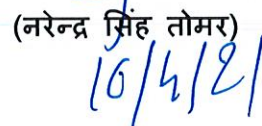 (नरेन्द्र सिंह तोमर)
16/4/21